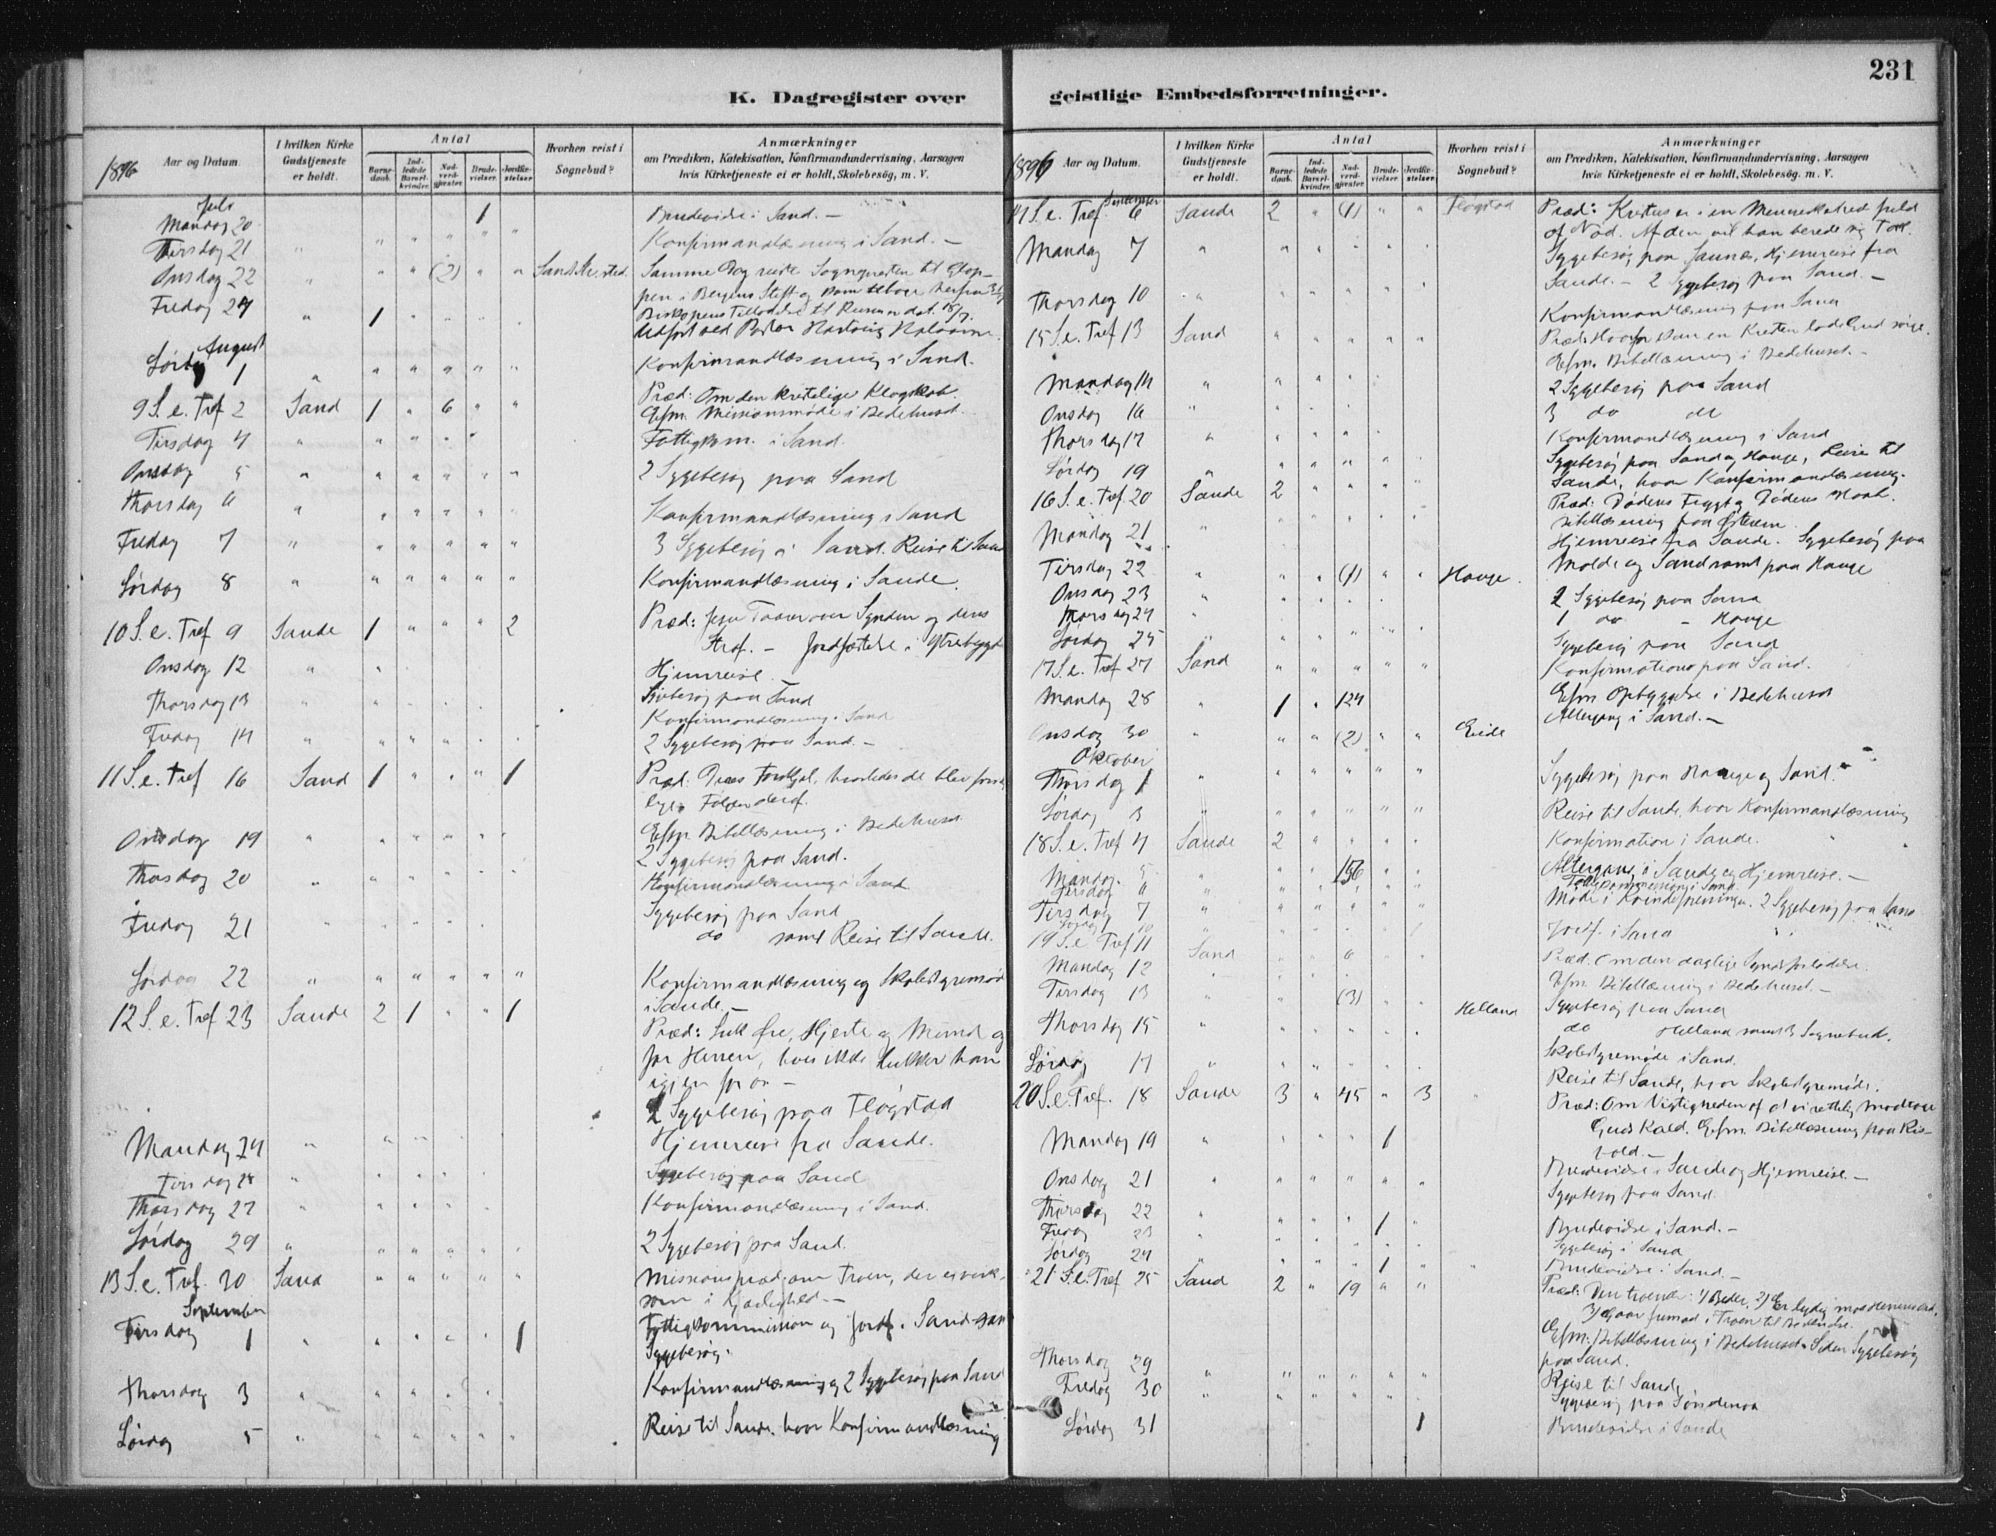 231
K. Dagregister over
geistlige Embedsforretninger.
1896 Aar og Datum.
I hvilken Kirke Gudstjeneste er holdt.
Antal
Barnedaab. Indledede Barselkvinder. Nadverdgjester. Brudevielser. Jordfæstelser.
Hvorhen reist i Sognebud?
Anmærkninger
om Prædiken, Katekisation, Konfirmandundervisning, Aarsagen
hvis Kirketjeneste ei er holdt, Skolebesøg, m. V.
Juli
Mandag 20 1 Brudevielse i Sand. —
Tirsdag 21 " " " " " " Konfirmandlæsning i Sand. —
Onsdag 22 " " " (2) " " Samme Dag reiste Sognepresten til
pen i Bergens Stift og kom tilbage derfra
Fredag 24 " 1 " " " " Biskopens Tilladelse til Reisen dat. 18/7.
August
Lørdag 1 " " " " " " Konfirmandlæsning i Sand.
9 S. e. Tref 2 Sand 1 " 6 " " Præd: Om den kristelige Klogskab.
Efm. Missionsmøde i Bedehuset.
Tirsdag 4 " " " " " Fattigkom. i Sand.
Onsdag 5 " " " " " " 2 Sygebesøg paa Sand
Thorsdag 6 " " " " " " Konfirmandlæsning i Sand
Fredag 7 " " " " " " 3 Sygebesøg i Sand. Reise til Sande
Lørdag 8 " " " " " " Konfirmandlæsning i Sande.
10 S. e. Tref 9 Sande 1 " " " 2 Præd: Jesu Taarer over Synden og dens
Straf. — Jordfæstelse i Ytrebygd
Onsdag 12 " " Hjemreise. —
Thorsdag 13 " " Sygebesøg paa Sand
Konfirmandlæsning i Sand
Fredag 14 " " " " " " 2 Sygebesøg paa Sand. —
11 S. e. Tref 16 Sand 1 " " " 1 Præd.
Efm. Bibellæsning i Bedehuset
Onsdag 19 " " " " " 2 Sygebesøg paa Sand.
Thorsdag 20 " " " " " " Konfirmandlæsning i Sand
Fredag 21 " " " " Sygebesøg paa Sand
do samt Reise til Sande.
Lørdag 22 " " " " " " Konfirmandlæsning og Skolestyremøde
i Sande. —
12 S. e. Tref 23 Sande 2 1 " " 1 Præd: Luk Øre, Hjerte og Mund op
for Herren, hvis ikke lukker han
igjen for os —
2 Sygebesøg paa Fløgstad
Mandag 24 " " " " Hjemreise fra Sande.
Tirsdag 25 " " " " " Sygebesøg paa Sand
Thorsdag 27 " " " " " Konfirmandlæsning i Sand.
Lørdag 29 " " " " " " 2 Sygebesøg paa Sand.
13 S. e. Tref. 30 Sand " " " " " Missionspræd. om Troen, der er virk-
som i Kjærlighed. —
September
Tirsdag 1 " " " " " 1 Fattigkommission og Jordf. i Sand samt
Sygebesøg.
Thorsdag 3 " " " " " Konfirmandlæsning og 2 Sygebesøg paa Sand
Lørdag 5 " " " " " Reise til Sande, hvor Konfirmandlæsning
1896 Aar og Datum.
I hvilken Kirke Gudstjeneste er holdt.
Antal
Barnedaab. Indledede Barselkvinder. Nadverdgjester. Brudevielser. Jordfæstelser.
Hvorhen reist i Sognebud?
Anmærkninger
om Prædiken, Katekisation, Konfirmandundervisning, Aarsagen
hvis Kirketjeneste ei er holdt, Skolebesøg, m. V.
September
14 S. e. Tref. 6 Sande 2 " (1) " " Fløgstad Præd: Kristus er i en Menneskehed fuld
af Nød.
Mandag 7 " " " " " " Sygebesøg paa Hjemreise fra
Sande. — 2 Sygebesøg paa Sand. —
Thorsdag 10 " " " " " " Konfirmandlæsning paa Sand
15 S. e. Tref 13 Sand " " " " " Præd: Hvorfor kan en Kristen lade Gud sørge.
Efm. Bibellæsning i Bedehuset. —
Mandag 14 " " " " " 2 Sygebesøg paa Sand
Onsdag 16 " " " " 3 do do
Thorsdag 17 " " " " " Konfirmandlæsning i Sand
Lørdag 19 " " " " " Sygebesøg paa Sand og Hauge, Reise til
Sande, hvor Konfirmandlæsning.
16 S. e. Tref 20 Sande 2 " " " " Præd: Dødens Frygt og Dødens Haab.
Bibellæsning paa
Mandag 21 " " " " " Hjemreise fra Sande. Sygebesøg paa
Molde og Sand samt paa Hauge
Tirsdag 22 " " " (1) " " Hauge.
Onsdag 23 " " " " 2 Sygebesøg paa Sand
Thorsdag 24 " 1 do — Hauge
Lørdag 25 " " " " " " Sygebesøg paa Sand
17 S. e. Tref 27 Sand " " " " " Konfirmation paa Sand.
Efm Opbyggelse i Bedehuset
Mandag 28 " 1 " 124 Altergang i Sand. —
Onsdag 30 " " " (2) " " Eide
Oktober
Thorsdag 1 " " " " " " Sygebesøg paa Hauge og Sand.
Lørdag 3 " " " " " " Reise til Sande, hvor Konfirmandlæsning
18 S. e. Tref 4 Sande 2 " " " " Konfirmation i Sande.
Mandag 5 " " " 156 " " Altergang i Sande og Hjemreise. —
Tirsdag 6 " " " " " " Fattigkommission i Sand.
7 " " " " " " Møde i Kvindeforeningen. 2 Sygebesøg paa Sand
Lørdag 10 Jordf. i Sand
19 S. e. Tref 11 Sand " " 6 " " Præd. Om den daglige Syndsforladelse.
Efm. Bibellæsning i Bedehuset. —
Mandag 12 " " Sygebesøg paa Sand
Tirsdag 13 " " " (3) " " Helland do Helland samt 3 Sognebud.
Thorsdag 15 " " " " " " Skolestyremøde i Sand.
Lørdag 17 " " " " " " Reise til Sande, hvor Skolestyremøde.
20 S. e. Tref. 18 Sande 3 " 45 " 3 Præd: Om Vigtigheden af at vi rettelig modtage
Guds Kald. Efm. Bibellæsning paa Ris-
vold. —
Mandag 19 " " " " 1 Brudevielse i Sande og Hjemreise. —
Onsdag 21 " " " " " " Sygebesøg paa Sand.
Thorsdag 22 " " " " 1 " Brudevielse i Sand. —
Fredag 23 " " " " " " Sygebesøg i Sand
Lørdag 24 " " " " 1 " Brudevielse i Sand. —
21 S. e. Tref 25 Sand 2 " 19 " " Præd: Den troende: 1) Beder, 2) Er lydig mod Herrens Ord,
3) Gaar fremad i Troen til
Efm: Bibellæsning i Bedehuset. Siden Sygebesøg
paa Sand.
Thorsdag 29 " " " " " " Reise til Sande
Fredag 30 " " " " " " Sygebesøg paa
Lørdag 31 1 Brudevielse i Sande